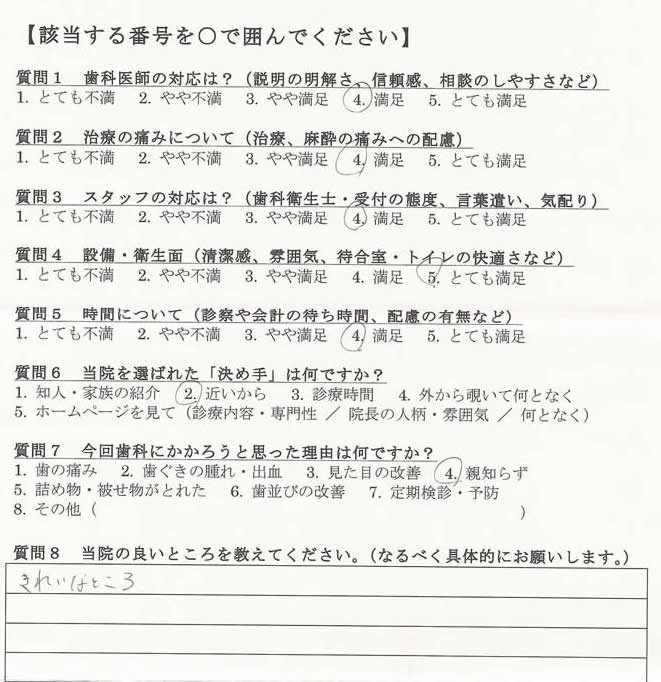 【該当する番号を〇で囲んでください】
質問１ 歯科医師の対応は？（説明の明解さ、信頼感、相談のしやすさなど）
1. とても不満 2. やや不満 3. やや満足 4. 満足 5. とても満足
質問２ 治療の痛みについて（治療、麻酔の痛みへの配慮）
1. とても不満 2. やや不満 3. やや満足 4. 満足 5. とても満足
質問３ スタッフの対応は？（歯科衛生士・受付の態度、言葉遣い、気配り）
1. とても不満 2. やや不満 3. やや満足 4. 満足 5. とても満足
質問４ 設備・衛生面（清潔感、雰囲気、待合室・トイレの快適さなど）
1. とても不満 2. やや不満 3. やや満足 4. 満足 5. とても満足
質問５ 時間について（診察や会計の待ち時間、配慮の有無など）
1. とても不満 2. やや不満 3. やや満足 4. 満足 5. とても満足
質問６ 当院を選ばれた「決め手」は何ですか？
1. 知人・家族の紹介 2. 近いから 3. 診療時間 4. 外から覗いて何となく
5. ホームページを見て（診療内容・専門性 ／ 院長の人柄・雰囲気 ／ 何となく）
質問７ 今回歯科にかかろうと思った理由は何ですか？
1. 歯の痛み 2. 歯ぐきの腫れ・出血 3. 見た目の改善 4. 親知らず
5. 詰め物・被せ物がとれた 6. 歯並びの改善 7. 定期検診・予防
8. その他（ ）
質問８ 当院の良いところを教えてください。（なるべく具体的にお願いします。）
きれいなところ